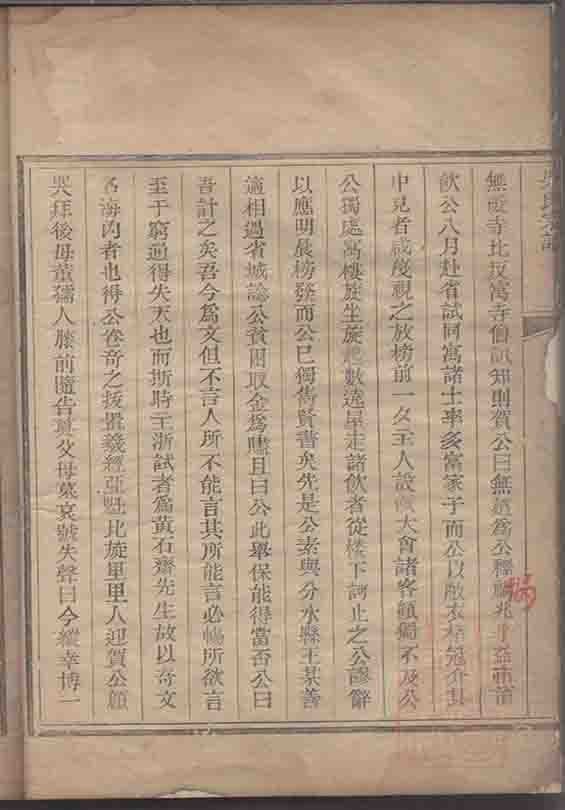 無 寺比反寓寺僧 知則賀公曰無 為公釋 兆乎益沛
飲公八月赴省試同寓諸士率多富家子而公以敝衣 冠介其
中見者咸蔑視之放榜前一夕主人設 大會諸客顧獨不及公
公獨處寓樓旋坐旋 數遶星走諸飲者從楼下訶止之公謬辭
以應明晨榜發而公已獨雋賢書矣先是公素與分水縣王某善
適相遇省城諗公貧困取金為贐且曰公此舉保能得當否公曰
吾計之矣吾今為文但不言人所不能言其所能言必暢所欲言
至于窮通得失天也而斯時主浙試者為黃石齋先生故以奇文
名海內者也得公卷奇之拔置羲經亞魁比旋里里人迎賀公顧
哭拜後母董孺人膝前隨告 父母墓哀號失聲曰今縱幸博一